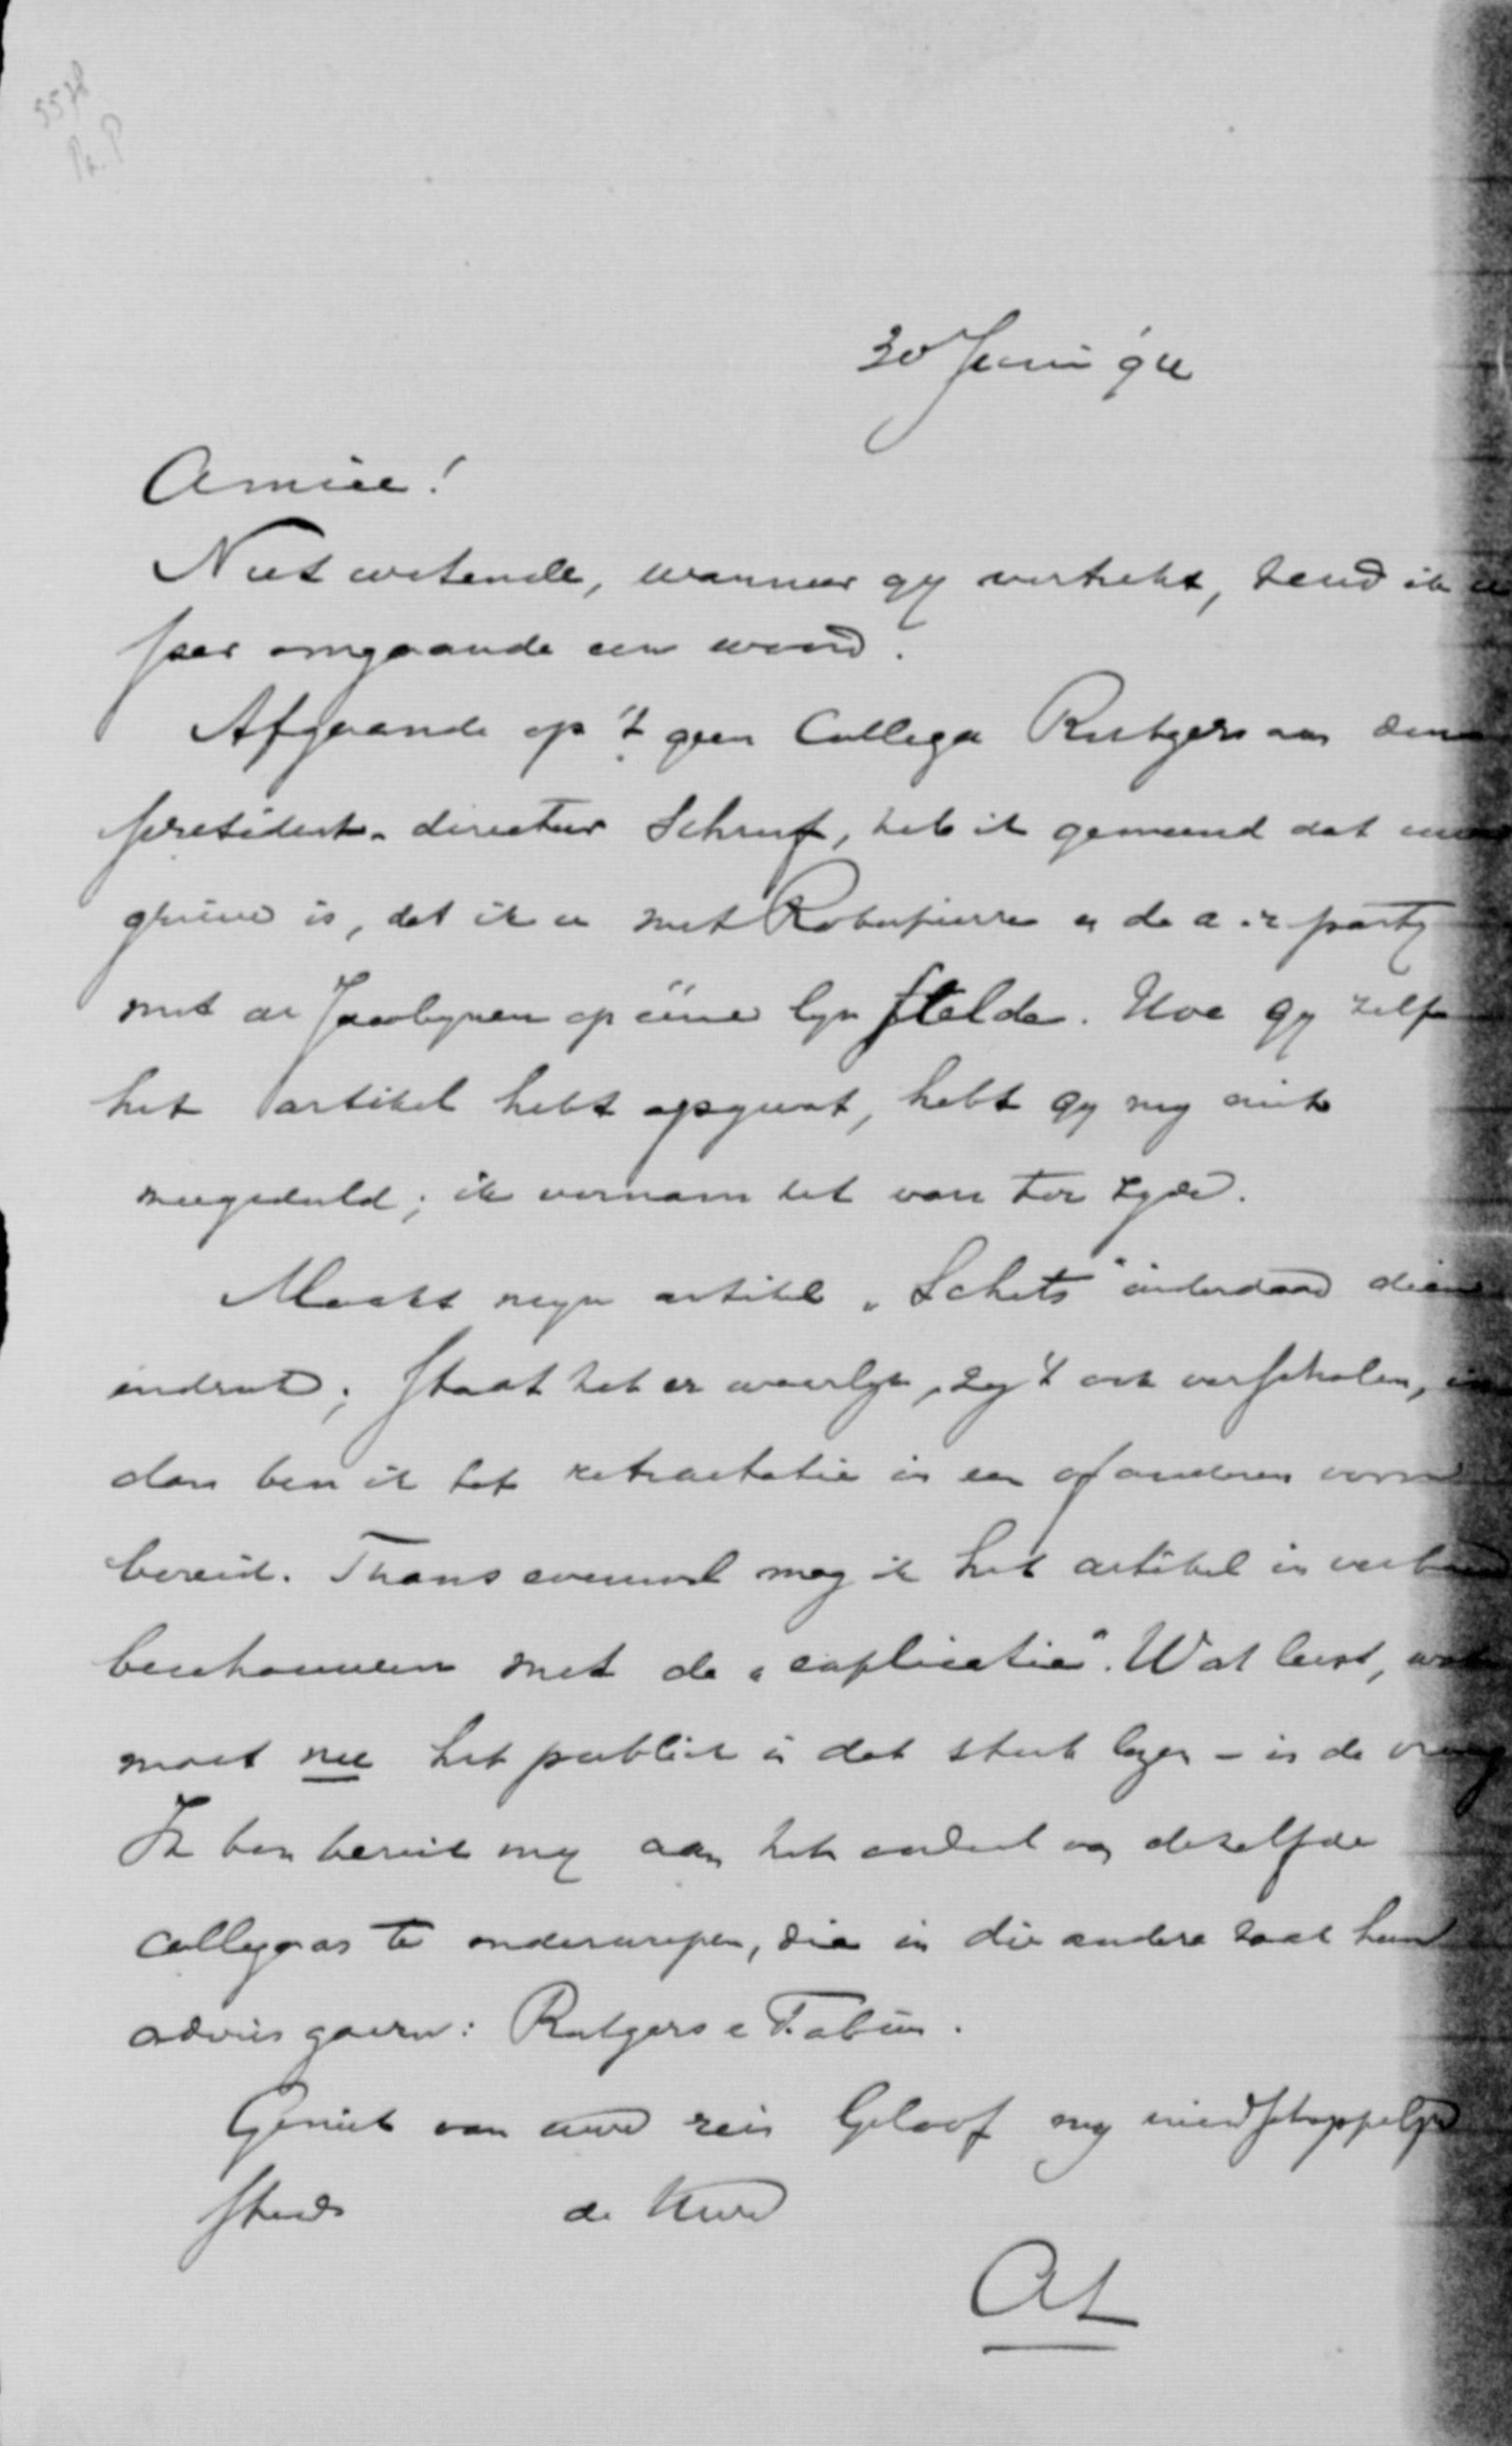 5578
Pa. P
30 Juni 94
Amice!
Niet wetende, wanneer gy vertrekt, zend ik u
per omgaande een woord.
Afgaande op 't geen Collega Rutgers aan den
president-directeur schreef, heb ik gemeend dat uwe
grieve is, dat ik u met Robespierre en de a.r. party
met de Jacobynen op ééne lyn stelde. Hoe gy zelf
het artikel hebt opgevat, hebt gy my niet
meegedeeld; ik vernam het van ter zyde.
Maakt myn artikel „Schets" inderdaad dien
indruk; staat het er waarlyk, zy 't ook verscholen, in
dan ben ik tot retractatie in een of anderen vorm
bereid. Thans evenwel mag ik het artikel in verband
beschouwen met de „explicatie". Wat leest, wat
moet nu het publiek in dat stuk lezen – is de vraag
Ik ben bereid my aan het oordeel van dezelfde
collegaas te onderwerpen, die in die andere zaak hun
advies gaven: Rutgers en Fabius.
Geniet van uwe reis Geloof my vriendschappelyk
steeds de Uwe
AL